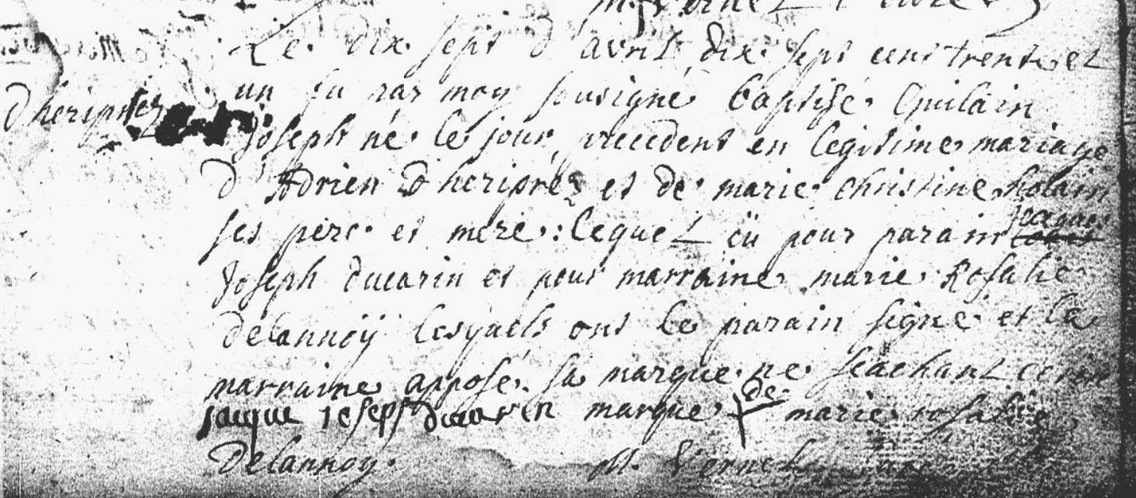 Le dix sept d'avril dix sept cens trente et
d'heriprez
un fu par moy sousigné baptisé Guilain
Joseph né le jour precedent en legitime mariage
d'Adrien d'heriprez et de marie christine holain
ses pere et mere: lequel eü pour parain jacques
Joseph ducarin et pour marraine marie Rosalie
delannoÿ lesquels ont le parain signé et la
marraine apposé sa marque ne seachant ecrire
jaque ioseph ducarin marque de marie rosalie
Delannoy. M.